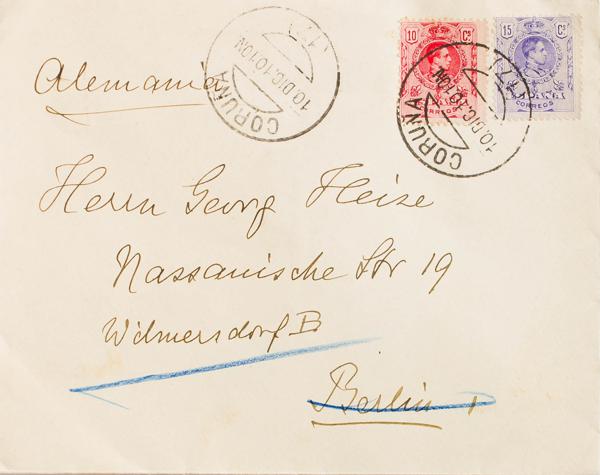 Alemania
10 Cs
CORREOS
15 Cs
CORREOS
CORUÑA
10.DIC.10.10N
CORUÑA
10.DIC.10.10N
Herrn Georg Heize
Nassauische Str 19
Wilmersdorf B
Berlin